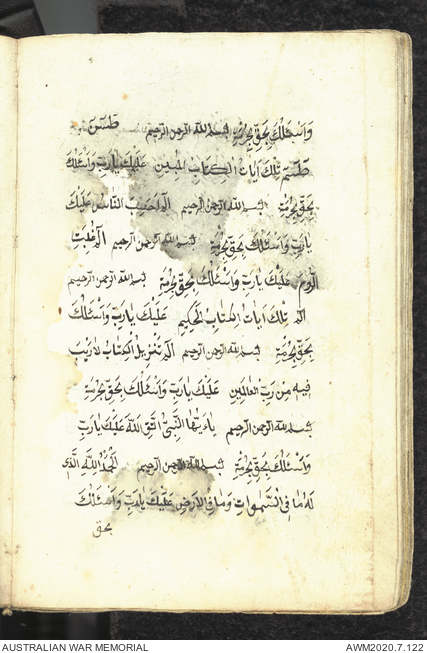 وَاَسْئَلُكَ بِحَقِّ بِحُرْمَةِ بِسْمِ اللهِ الرحمن الرحيم طٰسٓ
طٰسٓمٓ تِلْكَ اٰيَاتُ الْكِتَابِ الْمُبِينِ عَلَيْكَ يَارَبِّ وَاَسْئَلُكَ
بِحَقِّ بِحُرْمَةِ بِسْمِ اللهِ الرحمن الرحيم الٓمٓ اَحَسِبَ النَّاسُ عَلَيْكَ
يَارَبِّ وَاَسْئَلُكَ بِحَقِّ بِحُرْمَةِ بِسْمِ اللهِ الرحمن الرحيم الٓمٓ غُلِبَتِ
الرُّومُ عَلَيْكَ يَارَبِّ وَاَسْئَلُكَ بِحَقِّ بِحُرْمَةِ بِسْمِ اللهِ الرحمن الرحيم
الٓمٓ تِلْكَ اٰيَاتُ الْكِتَابِ الْحَكِيمِ عَلَيْكَ يَارَبِّ وَاَسْئَلُكَ
بِحَقِّ بِحُرْمَةِ بِسْمِ اللهِ الرحمن الرحيم الٓمٓ تَنْزِيلُ الْكِتَابِ لَارَيْبَ
فِيهِ مِنْ رَبِّ الْعَالَمِينَ عَلَيْكَ يَارَبِّ وَاَسْئَلُكَ بِحَقِّ بِحُرْمَةِ
بِسْمِ اللهِ الرحمن الرحيم يَااَيُّهَا النَّبِيُّ اتَّقِ اللهَ عَلَيْكَ يَارَبِّ
وَاَسْئَلُكَ بِحَقِّ بِحُرْمَةِ بِسْمِ اللهِ الرحمن الرحيم اَلْحَمْدُ لِلّٰهِ الَّذِي
لَهُ مَا فِي السَّمٰوَاتِ وَمَا فِي الْاَرْضِ عَلَيْكَ يَارَبِّ وَاَسْئَلُكَ
بحق
AUSTRALIAN WAR MEMORIAL AWM2020.7.122